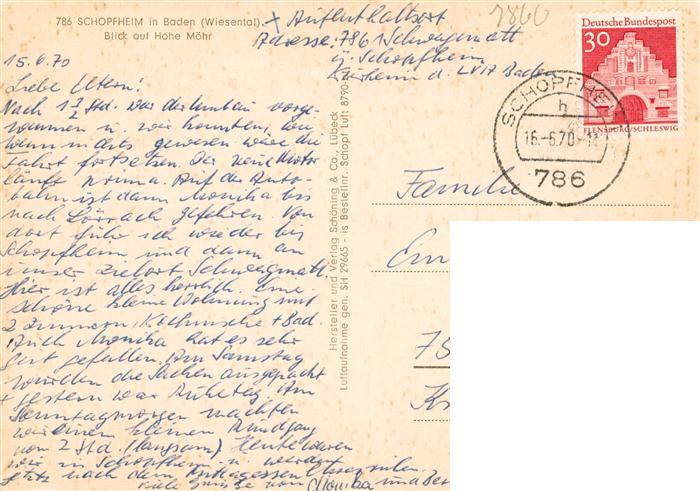 786 SCHOPFHEIM in Baden (Wiesental)
Blick auf Hohe Möhr
15.6.70
Liebe Eltern!
Nach 1 1/2 Std. war der Umbau vorge-
nommen u. wir konnten,
wenn nichts gewesen wäre die
Fahrt fortsetzen. Der neue Motor
läuft prima. Auf der Auto-
bahn ist dann Monika bis
nach Lörrach gefahren. Von
dort fuhr ich wieder bis
Schopfheim und dann an
unser Zielort Schweigmatt.
Hier ist alles herrlich. Eine
schöne kleine Wohnung mit
2 Zimmern, Kochnische + Bad.
Auch Monika hat es sehr
gut gefallen. Am Samstag
wurden die Sachen ausgepackt
+ gestern war Ruhetag. Am
Sonntagmorgen machten
wir einen kleinen Rundgang
von 2 Std. (langsam) Heute waren
wir in Schopfheim u. werden
jetzt nach dem Mittagessen
Viele Grüsse von Monika und Ber
x Aufenthaltsort
Adresse: 7861 Schweigmatt
ü. Schopfheim
Kurheim d. LVA Baden
Hersteller und Verlag Schöning & Co., Lübeck
Luftaufnahme gen. SH 29665 - is Bestellnr. Schopf Luft 8790
7860
Deutsche Bundespost
30
FLENSBURG/SCHLESWIG
SCHOPFHEIM
h
16.-6.70
786
Familie
Em
75
Kr